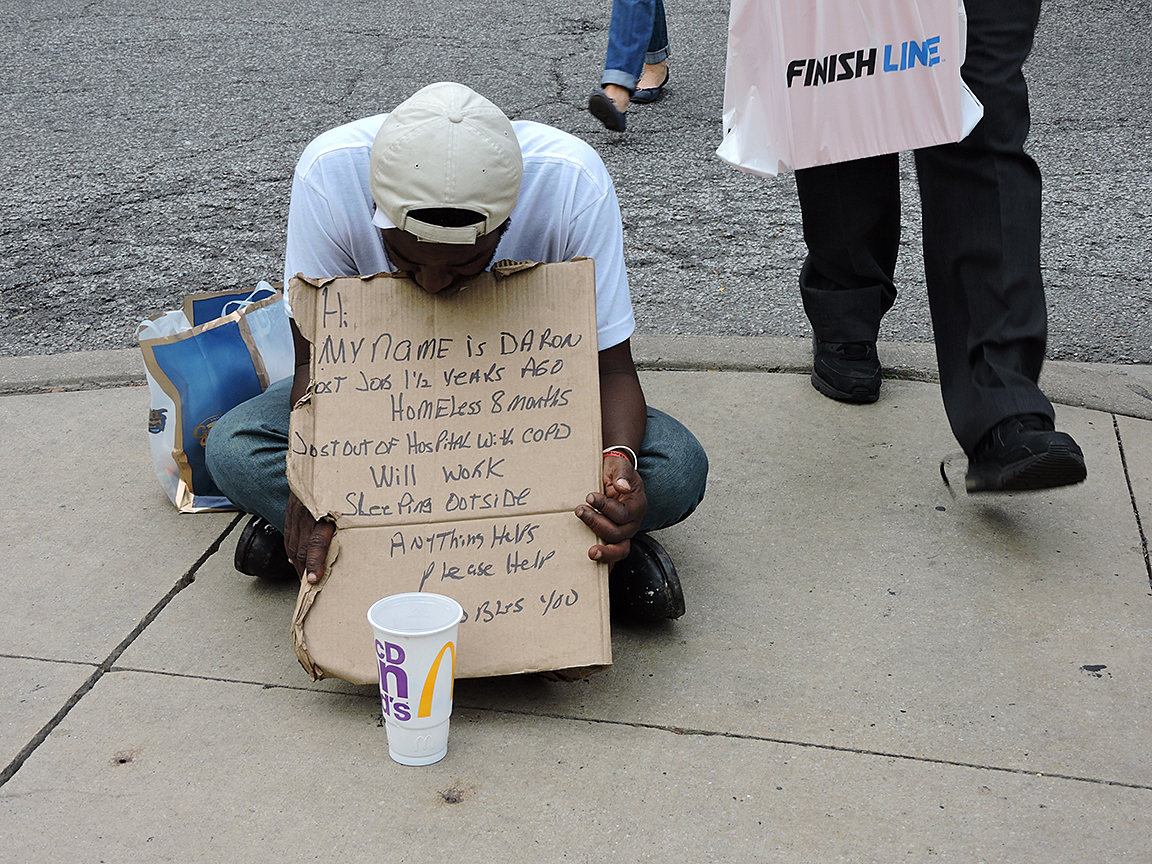 FINISH LINE
Hi
MY NAME is DARON
LOST JOB 1½ YEARS AGO
HOMELESS 8 MONTHS
JUST OUT OF HOSPITAL WITH COPD
WILL WORK
SLEEPING OUTSIDE
ANYTHING HELPS
PLEASE HELP
BLES YOU
CD
n
d's